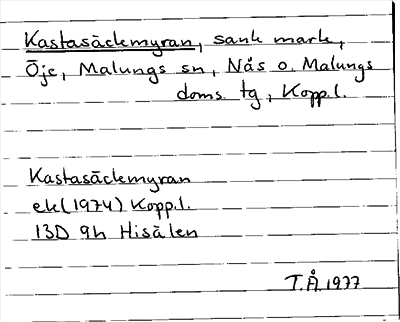 Kastasäckmyran, sank mark,
Öje, Malungs sn, Nås o. Malungs
doms. tg, Kopp.l.
Kastasäckmyran
ek (1974) Kopp.l.
13D 9h Hisälen
T.Å.1977